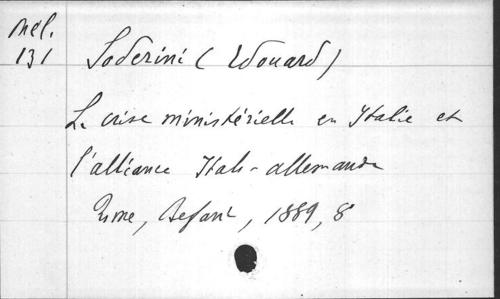 Mél.
131
Soderini (Edouard)
La crise ministérielle en Italie et
l'alliance Italo-allemande
Rome, Befani, 1889, 8°